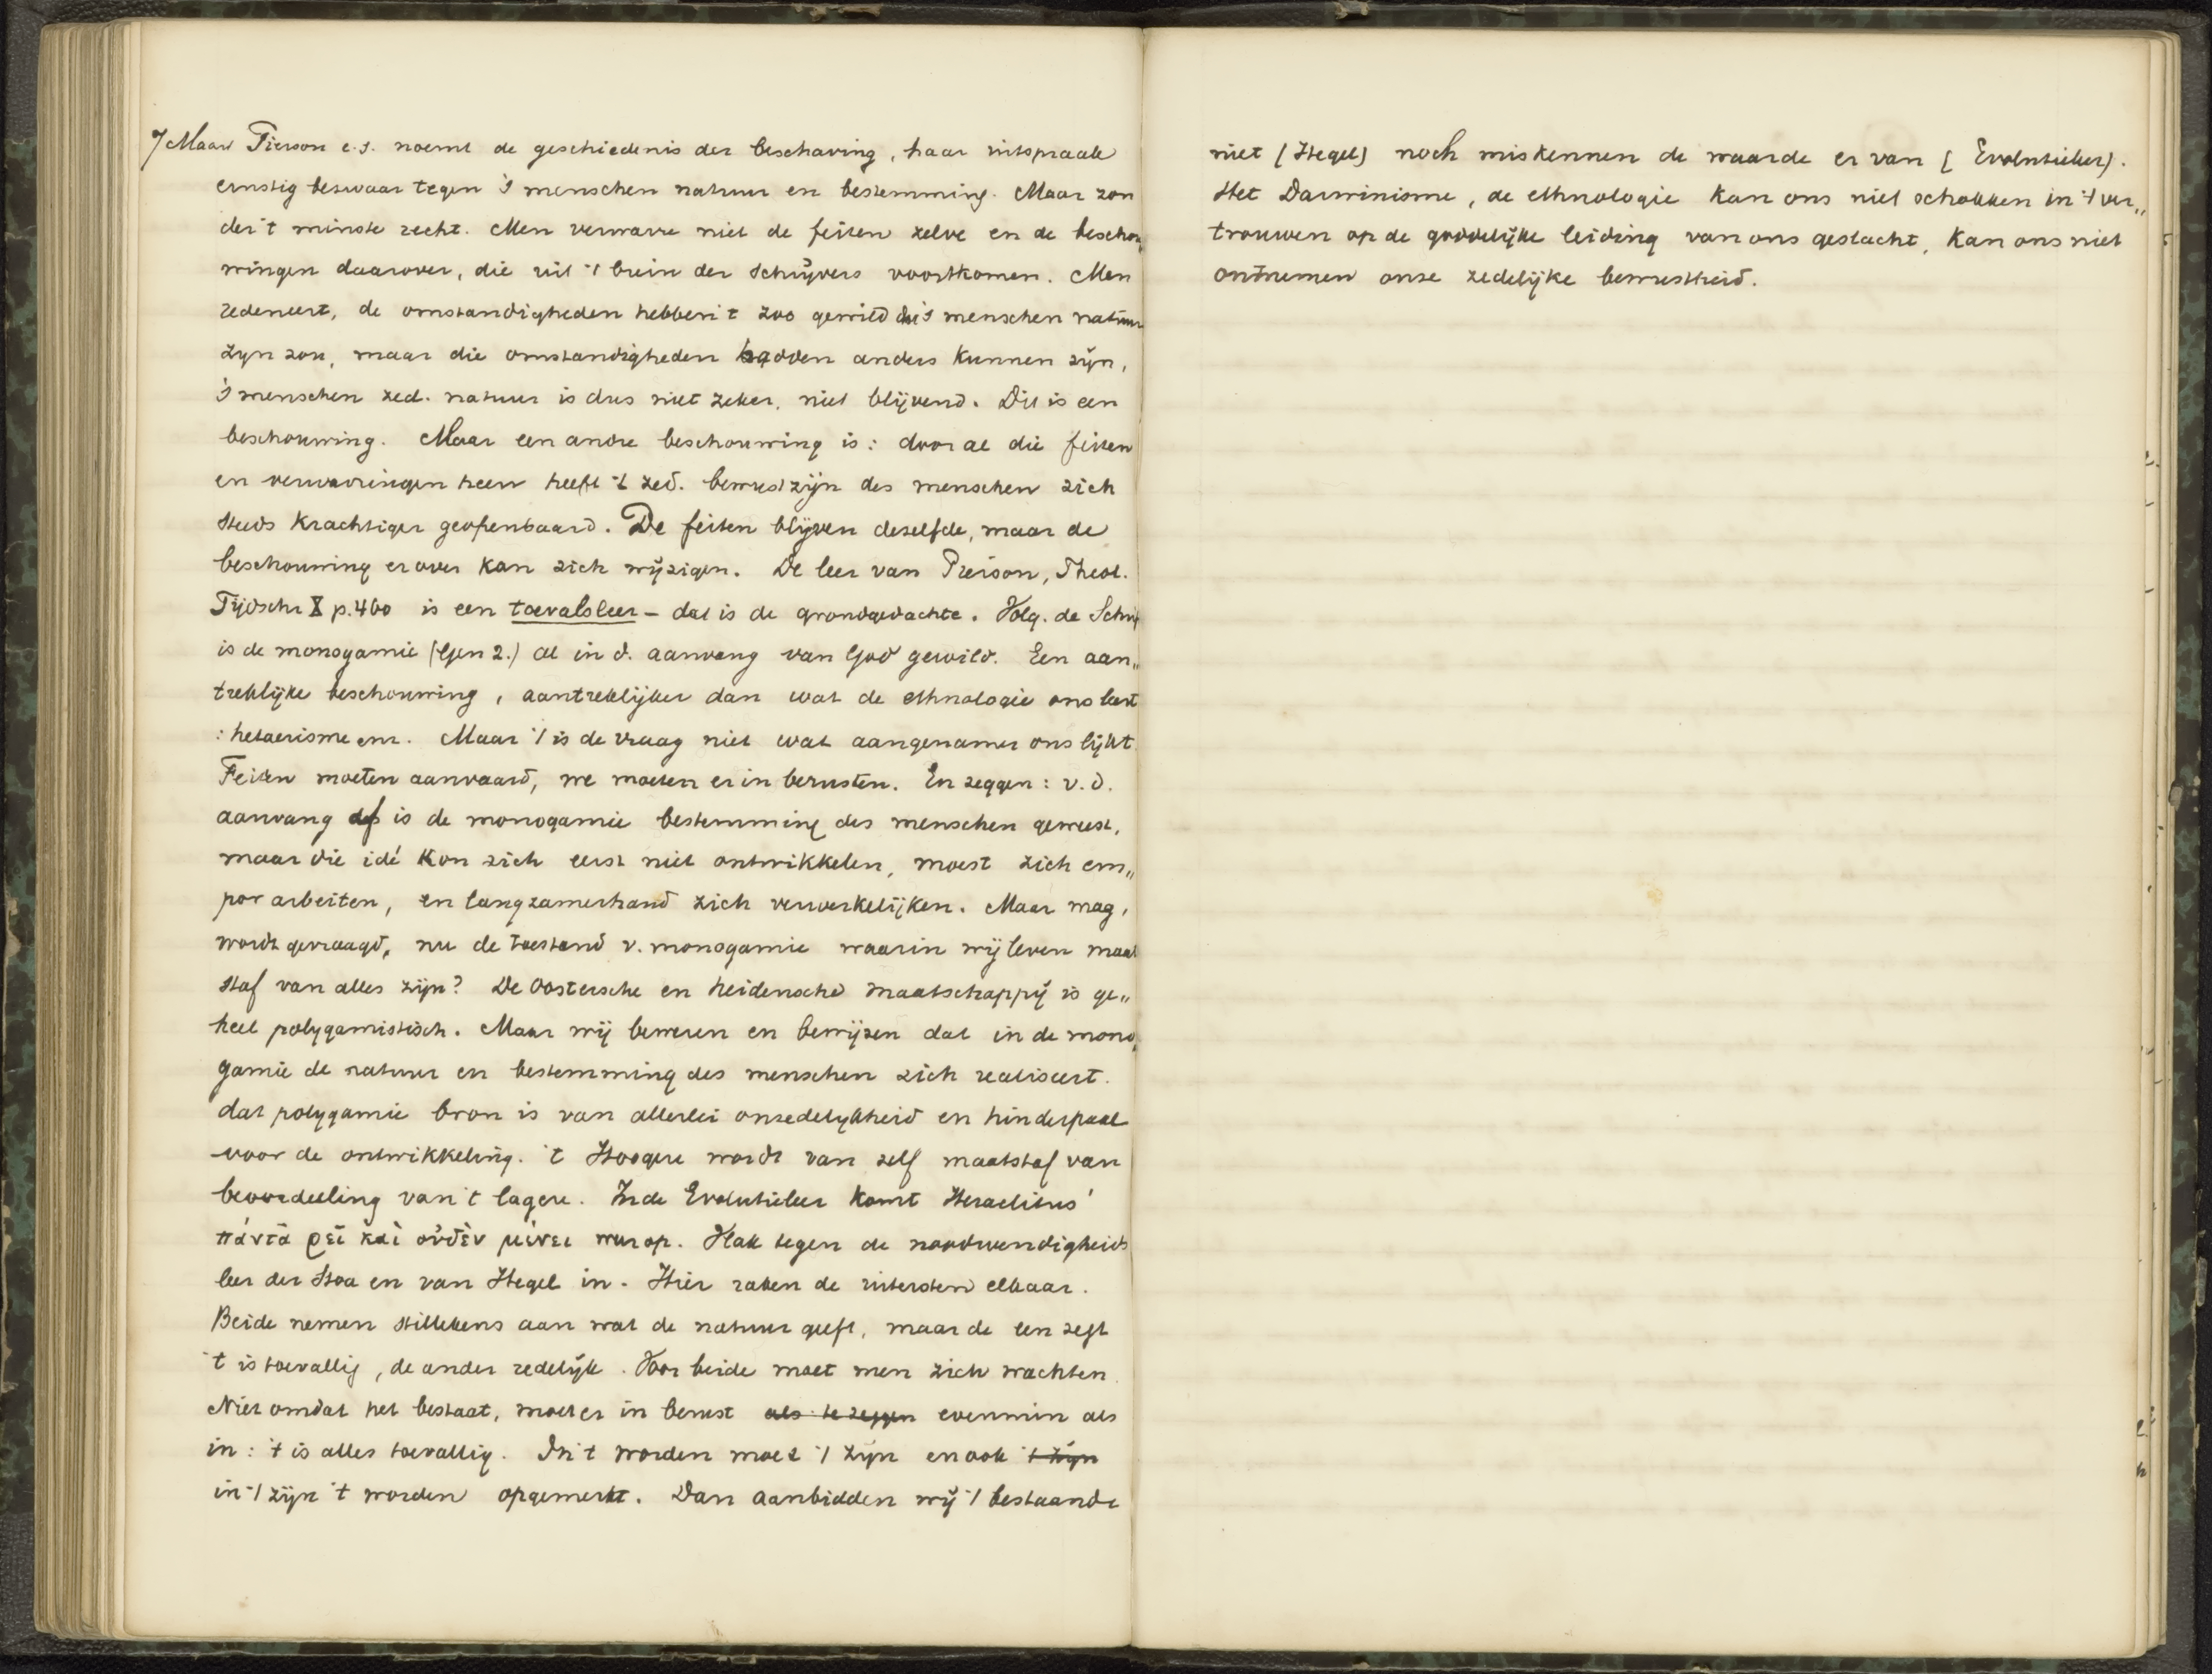 7 Maar Pierson e.s. noemt de geschiedenis der beschaving, haar uitspraak
ernstig bezwaar tegen 's menschen natuur en bestemming. Maar zon
der 't minste recht. Men verwarre niet de feiten zelve en de beschou„
wingen daarover, die uit 't brein der schrijvers voortkomen. Men
redeneert, de omstandigheden hebben 't zoo gewild dat 's menschen natuur
zijn zou, maar die omstandigheden hadden anders kunnen zijn,
's menschen zed. natuur is dus niet zeker, niet blijvend. Dit is een
beschouwing. Maar een andre beschouwing is: door al die feiten
en verwarringen heen heeft 't zed. bewustzijn des menschen zich
steeds krachtiger geopenbaard. De feiten blijven dezelfde, maar de
beschouwing erover kan zich wijzigen. De leer van Pierson, Theol.
Tijdschr X p.460 is een toevalsleer – dat is de grondgedachte. Volg. de Schrift
is de monogamie (Gen 2.) al in d. aanvang van God gewild. Een aan„
treklijke beschouwing, aantreklijker dan wat de ethnologie ons leert
: hetaerisme enz. Maar 't is de vraag niet wat aangenamer ons lijkt.
Feiten moeten aanvaard, we moeten er in berusten. En zeggen: v.d.
aanvang is de monogamie bestemming des menschen geweest,
maar die idé kon zich eerst niet ontwikkelen, moest zich em„
por arbeiten, en langzamerhand zich verwerkelijken. Maar mag,
wordt gevraagd, nu de toestand v. monogamie waarin wij leven maat
staf van alles zijn? De Oostersche en heidensche maatschappij is ge„
heel polygamistisch. Maar wij beweren en bewijzen dat in de mono„
gamie de natuur en bestemming des menschen zich realiseert.
dat polygamie bron is van allerlei onzedelijkheid en hinderpaal
voor de ontwikkeling. 't Hoogere wordt van zelf maatstaf van
beoordeeling van 't lagere. In de Evolutieleer komt Heraclitus'
πάντα ῥεῖ καὶ οὐδὲν μένει weer op. Vlak tegen de noodwendigheids
leer der Stoa en van Hegel in. Hier raken de uitersten elkaar.
Beide nemen stillekens aan wat de natuur geeft, maar de een zegt
't is toevallig, de ander redelijk. Voor beide moet men zich wachten.
Niet omdat het bestaat, moet er in berust als te zeggen evenmin als
in: 't is alles toevallig. In 't worden moet 't zijn en ook 't zijn
in 't zijn 't worden opgemerkt. Dan aanbidden wij 't bestaande
niet (Hegel) noch miskennen de waarde er van (Evolutieleer).
Het Darwinisme, de ethnologie kan ons niet schokken in 't ver„
trouwen op de goddelijke leiding van ons geslacht, kan ons niet
ontnemen onze zedelijke bewustheid.